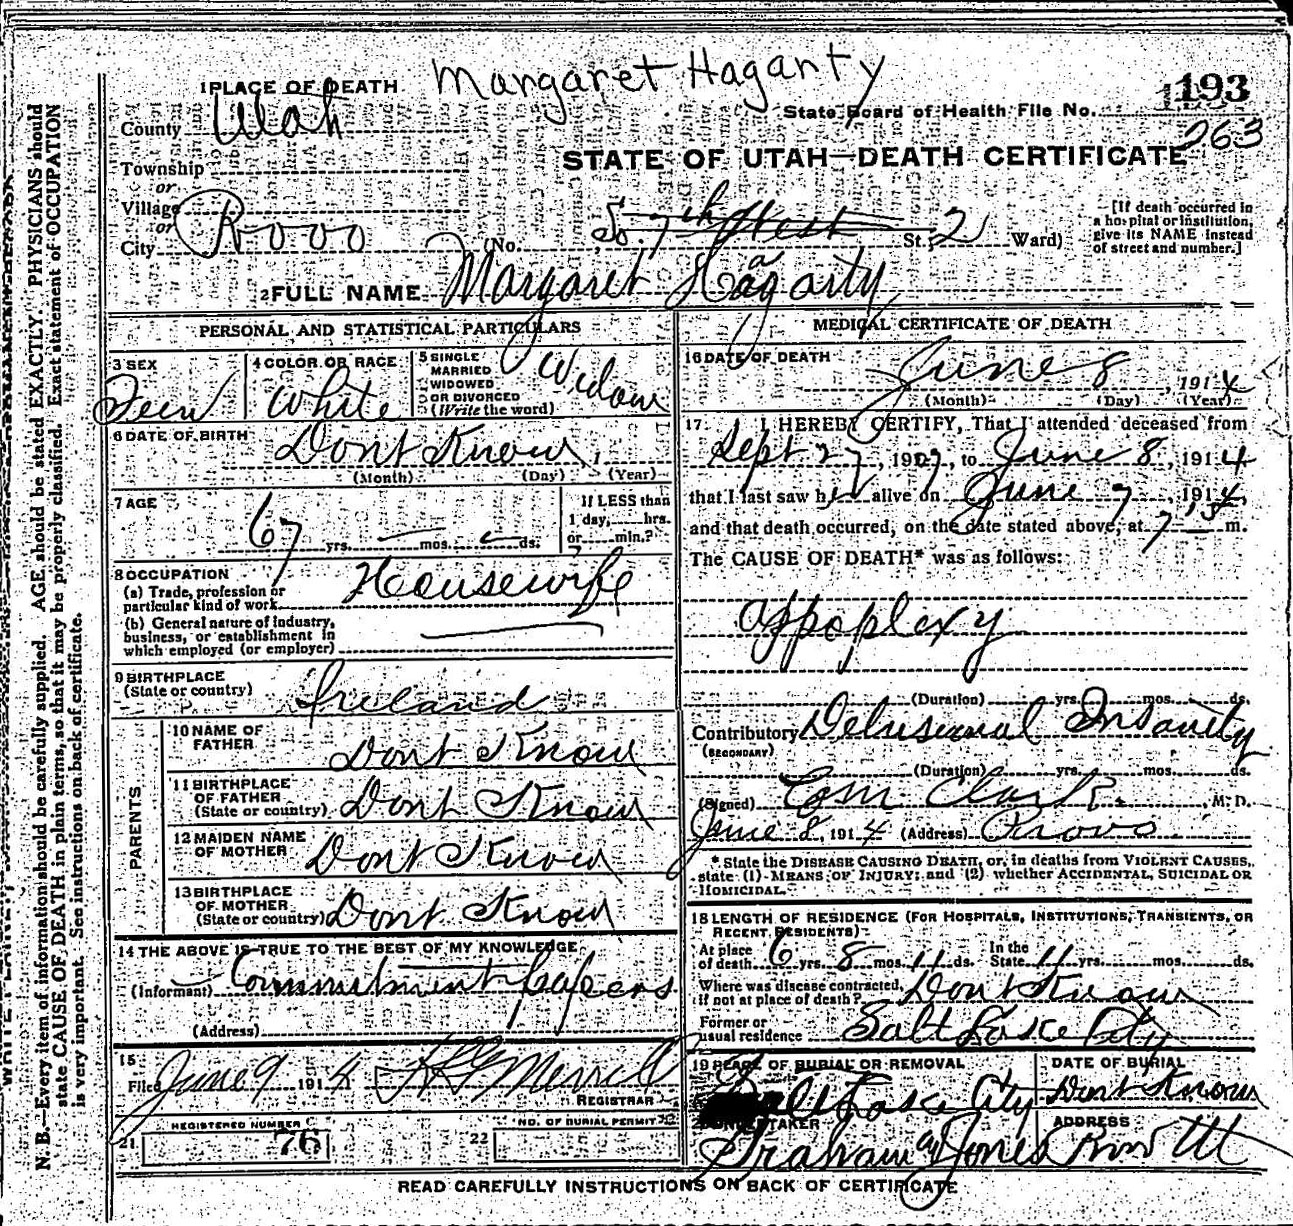 Margaret Haganty
1 PLACE OF DEATH
193
State Board of Health File No.
263
County Utah
STATE OF UTAH—DEATH CERTIFICATE
Township
or
Village
or
City Provo
(No. So. 7th West St. 2 Ward)
[If death occurred in
a hospital or institution,
give its NAME instead
of street and number.]
2 FULL NAME Margaret Hagarty
PERSONAL AND STATISTICAL PARTICULARS
3 SEX Fem
4 COLOR OR RACE White
5 SINGLE
MARRIED
WIDOWED
OR DIVORCED
(Write the word)
Widow
6 DATE OF BIRTH Dont Know
(Month) (Day) (Year)
7 AGE 67 yrs. — mos. — ds.
If LESS than
1 day, hrs.
or min.?
8 OCCUPATION
(a) Trade, profession or
particular kind of work Housewife
(b) General nature of industry,
business, or establishment in
which employed (or employer)
9 BIRTHPLACE
(State or country) Ireland
PARENTS
10 NAME OF
FATHER Dont Know
11 BIRTHPLACE
OF FATHER
(State or country) Dont Know
12 MAIDEN NAME
OF MOTHER Dont Know
13 BIRTHPLACE
OF MOTHER
(State or country) Dont Know
14 THE ABOVE IS TRUE TO THE BEST OF MY KNOWLEDGE
(Informant) Commitment Papers
(Address)
15
Filed June 9 1914 Merrill
REGISTRAR
REGISTERED NUMBER
21 76
NO. OF BURIAL PERMIT
22
MEDICAL CERTIFICATE OF DEATH
16 DATE OF DEATH
June 8, 1914
(Month) (Day) (Year)
17. I HEREBY CERTIFY, That I attended deceased from
Sept 27, 1907, to June 8, 1914
that I last saw her alive on June 7, 1914,
and that death occurred, on the date stated above, at m.
The CAUSE OF DEATH* was as follows:
Appoplexy
(Duration) yrs. mos. ds.
Contributory Delusional Insanity
(SECONDARY)
(Duration) yrs. mos. ds.
(Signed) Clark, M. D.
June 8, 1914 (Address) Provo
* State the DISEASE CAUSING DEATH, or, in deaths from VIOLENT CAUSES,
state (1) MEANS OF INJURY; and (2) whether ACCIDENTAL, SUICIDAL OR
HOMICIDAL.
18 LENGTH OF RESIDENCE (FOR HOSPITALS, INSTITUTIONS, TRANSIENTS, OR
RECENT RESIDENTS)
At place
of death 6 yrs. 8 mos. 11 ds.
In the
State 11 yrs. mos. ds.
Where was disease contracted,
if not at place of death? Dont Know
Former or
usual residence Salt Lake City
19 PLACE OF BURIAL OR REMOVAL
Salt Lake City
DATE OF BURIAL
Dont Know
UNDERTAKER
Graham Jones
ADDRESS
READ CAREFULLY INSTRUCTIONS ON BACK OF CERTIFICATE
N. B.—Every item of information should be carefully supplied. AGE should be stated EXACTLY. PHYSICIANS should
state CAUSE OF DEATH in plain terms, so that it may be properly classified. Exact statement of OCCUPATION
is very important. See instructions on back of certificate.